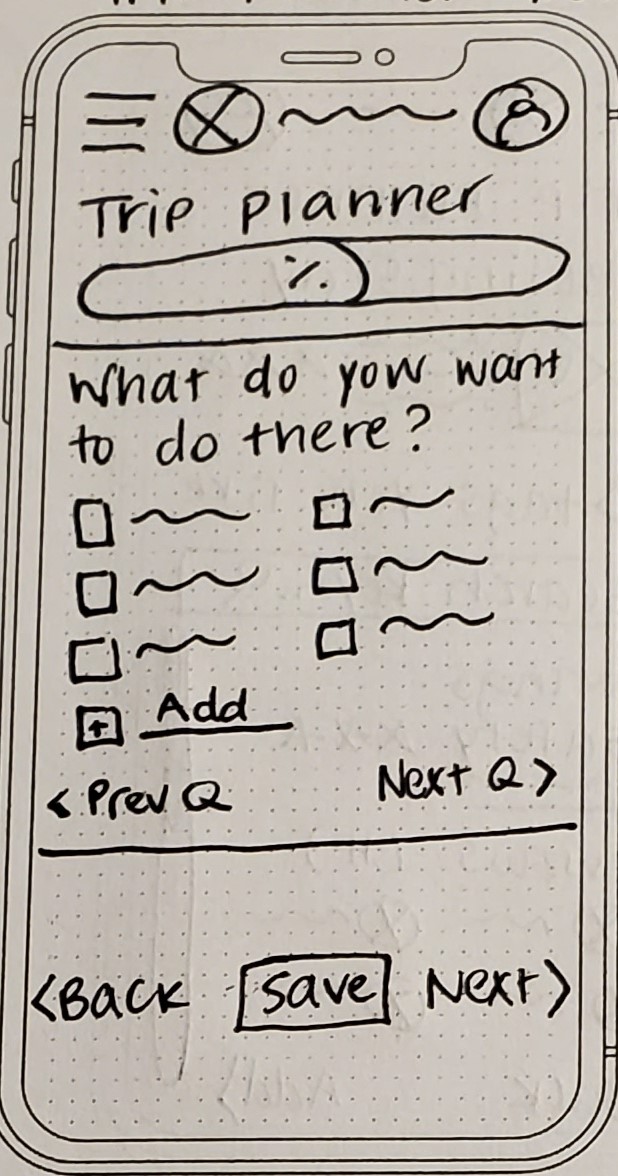 Trip planner
%
What do you want
to do there?
+ Add
< Prev Q Next Q >
<Back Save Next>